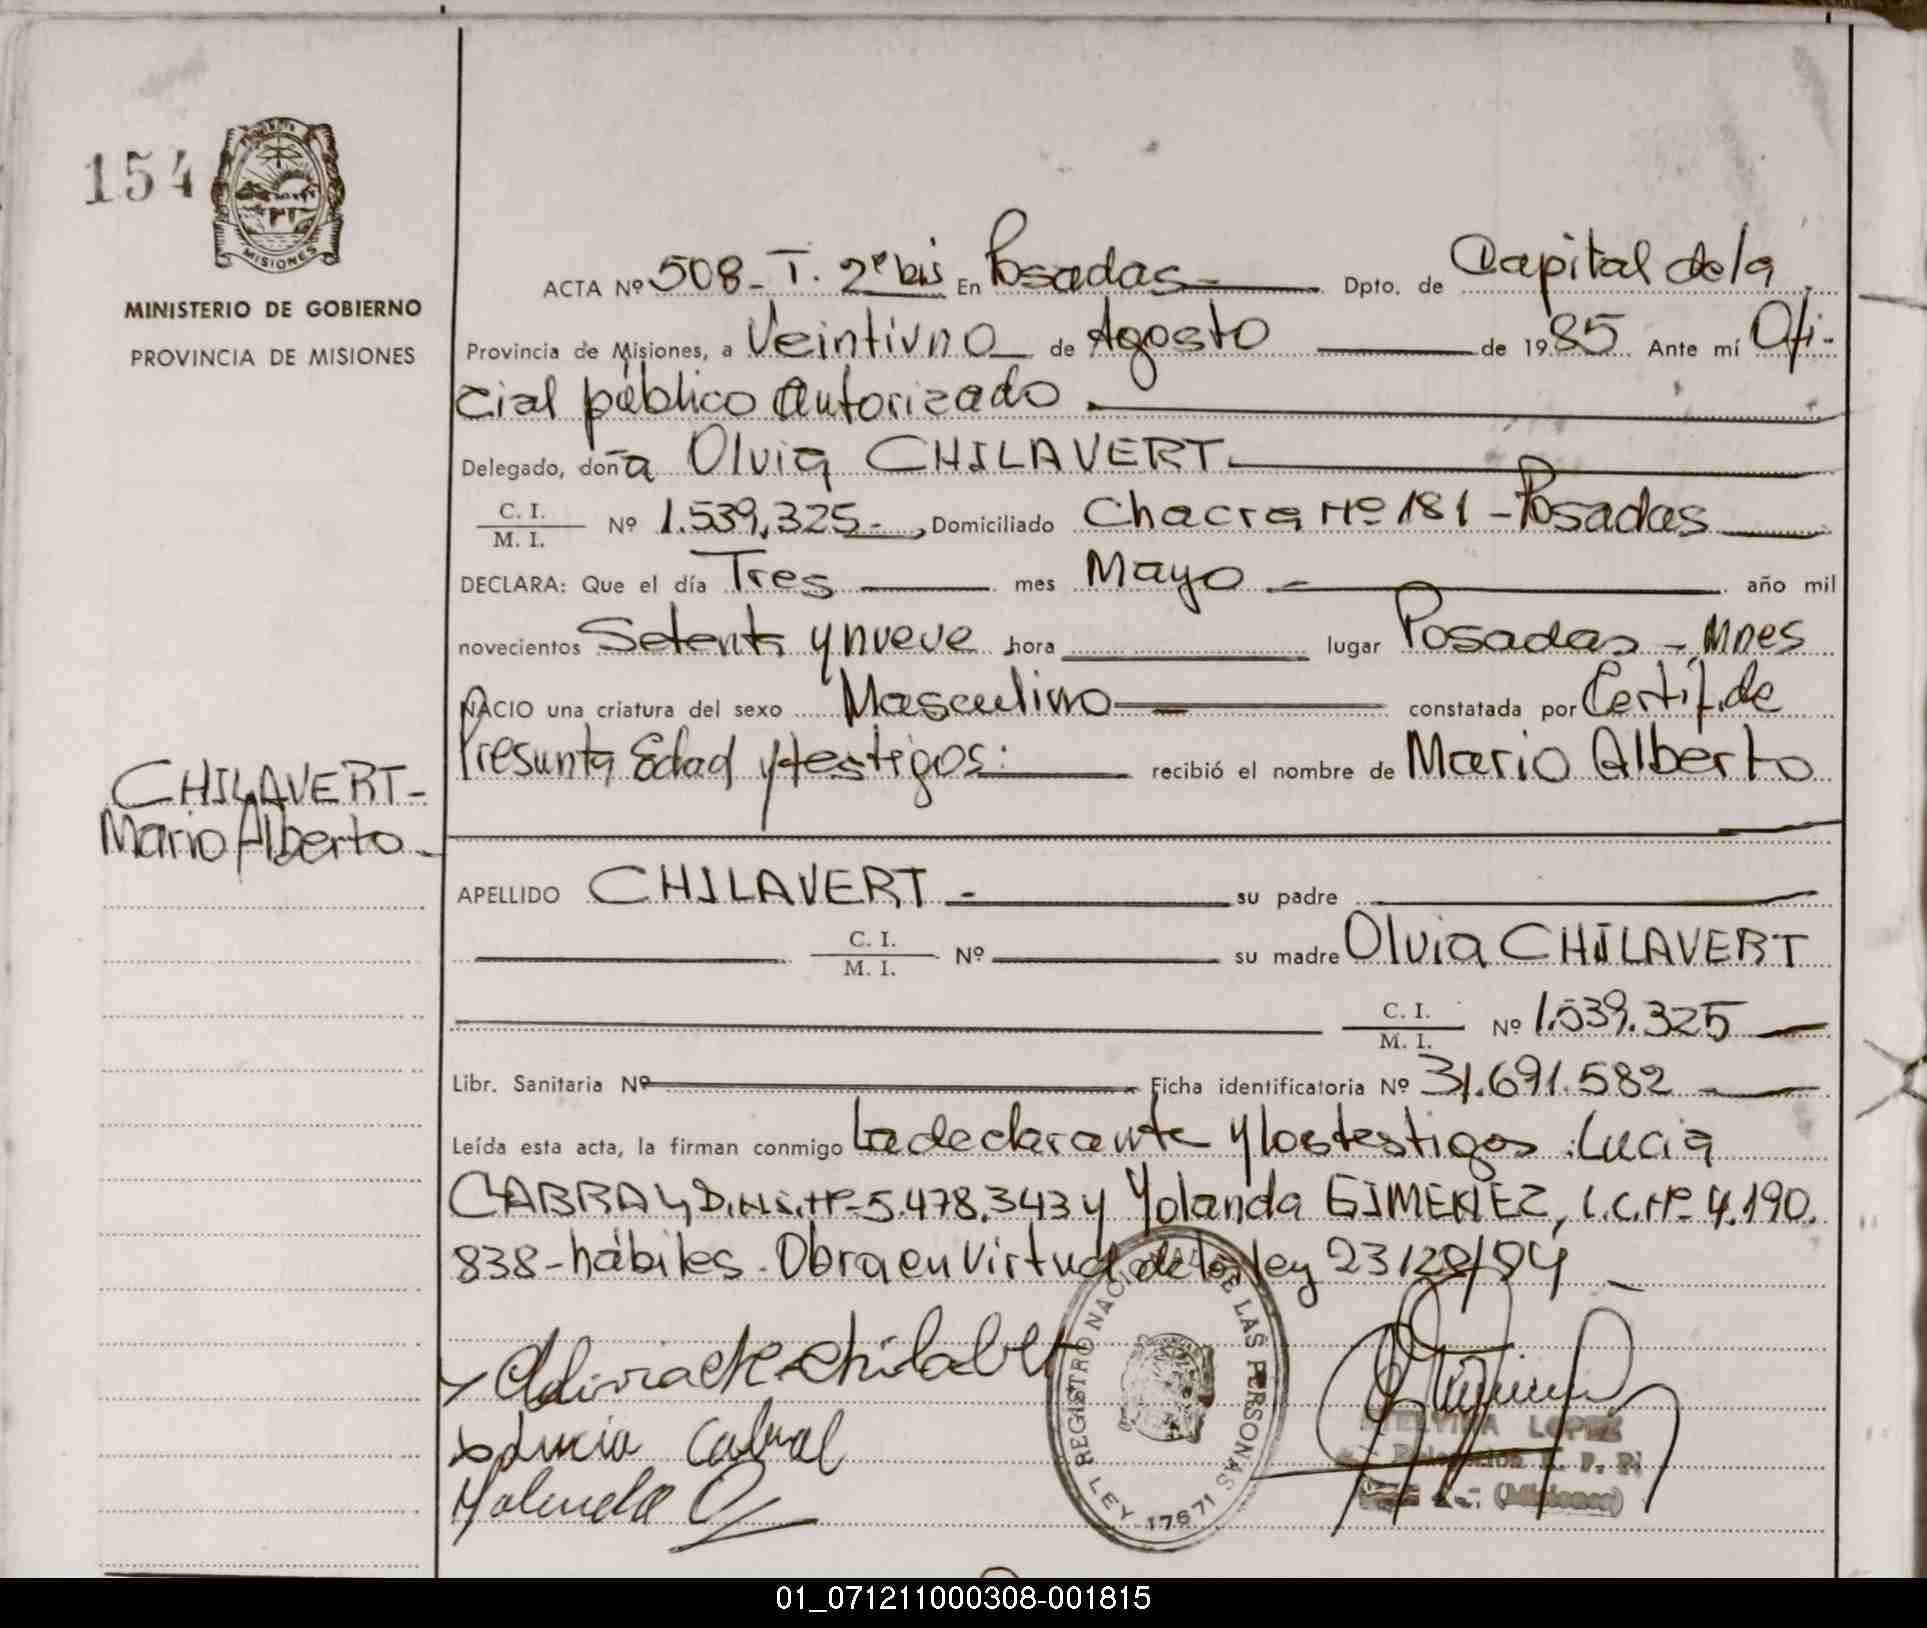 154
MISIONES
MINISTERIO DE GOBIERNO
PROVINCIA DE MISIONES
ACTA Nº 508 - T. 2º bis En Posadas - Dpto. de Capital de la
Provincia de Misiones, a Veintiuno de Agosto de 1985 Ante mí Ofi-
cial público autorizado.
Delegado, doña Olvia CHILAVERT
C. I.
M. I. Nº 1.539.325 - , Domiciliado Chacra Nº 181 - Posadas
DECLARA: Que el día Tres mes Mayo - año mil
novecientos Setenta y nueve hora lugar Posadas - Mnes
NACIO una criatura del sexo Masculino constatada por Certif. de
Presunta Edad y testigos: recibió el nombre de Mario Alberto
CHILAVERT -
Mario Alberto -
APELLIDO CHILAVERT - su padre
C. I.
M. I. Nº su madre Olvia CHILAVERT
C. I.
M. I. Nº 1.539.325
Libr. Sanitaria Nº Ficha identificatoria Nº 31.691.582
Leída esta acta, la firman conmigo La declarante y los testigos: Lucia
CABRAL, D.N.I. Nº 5.478.343 y Yolanda GIMENEZ, L.C. Nº 4.190.
838 - hábiles. Obra en virtud de la ley 23128/84
Lucia Cabral
REGISTRO NACIONAL DE LAS PERSONAS
LEY 17671
LOPEZ
(Misiones)
01_071211000308-001815